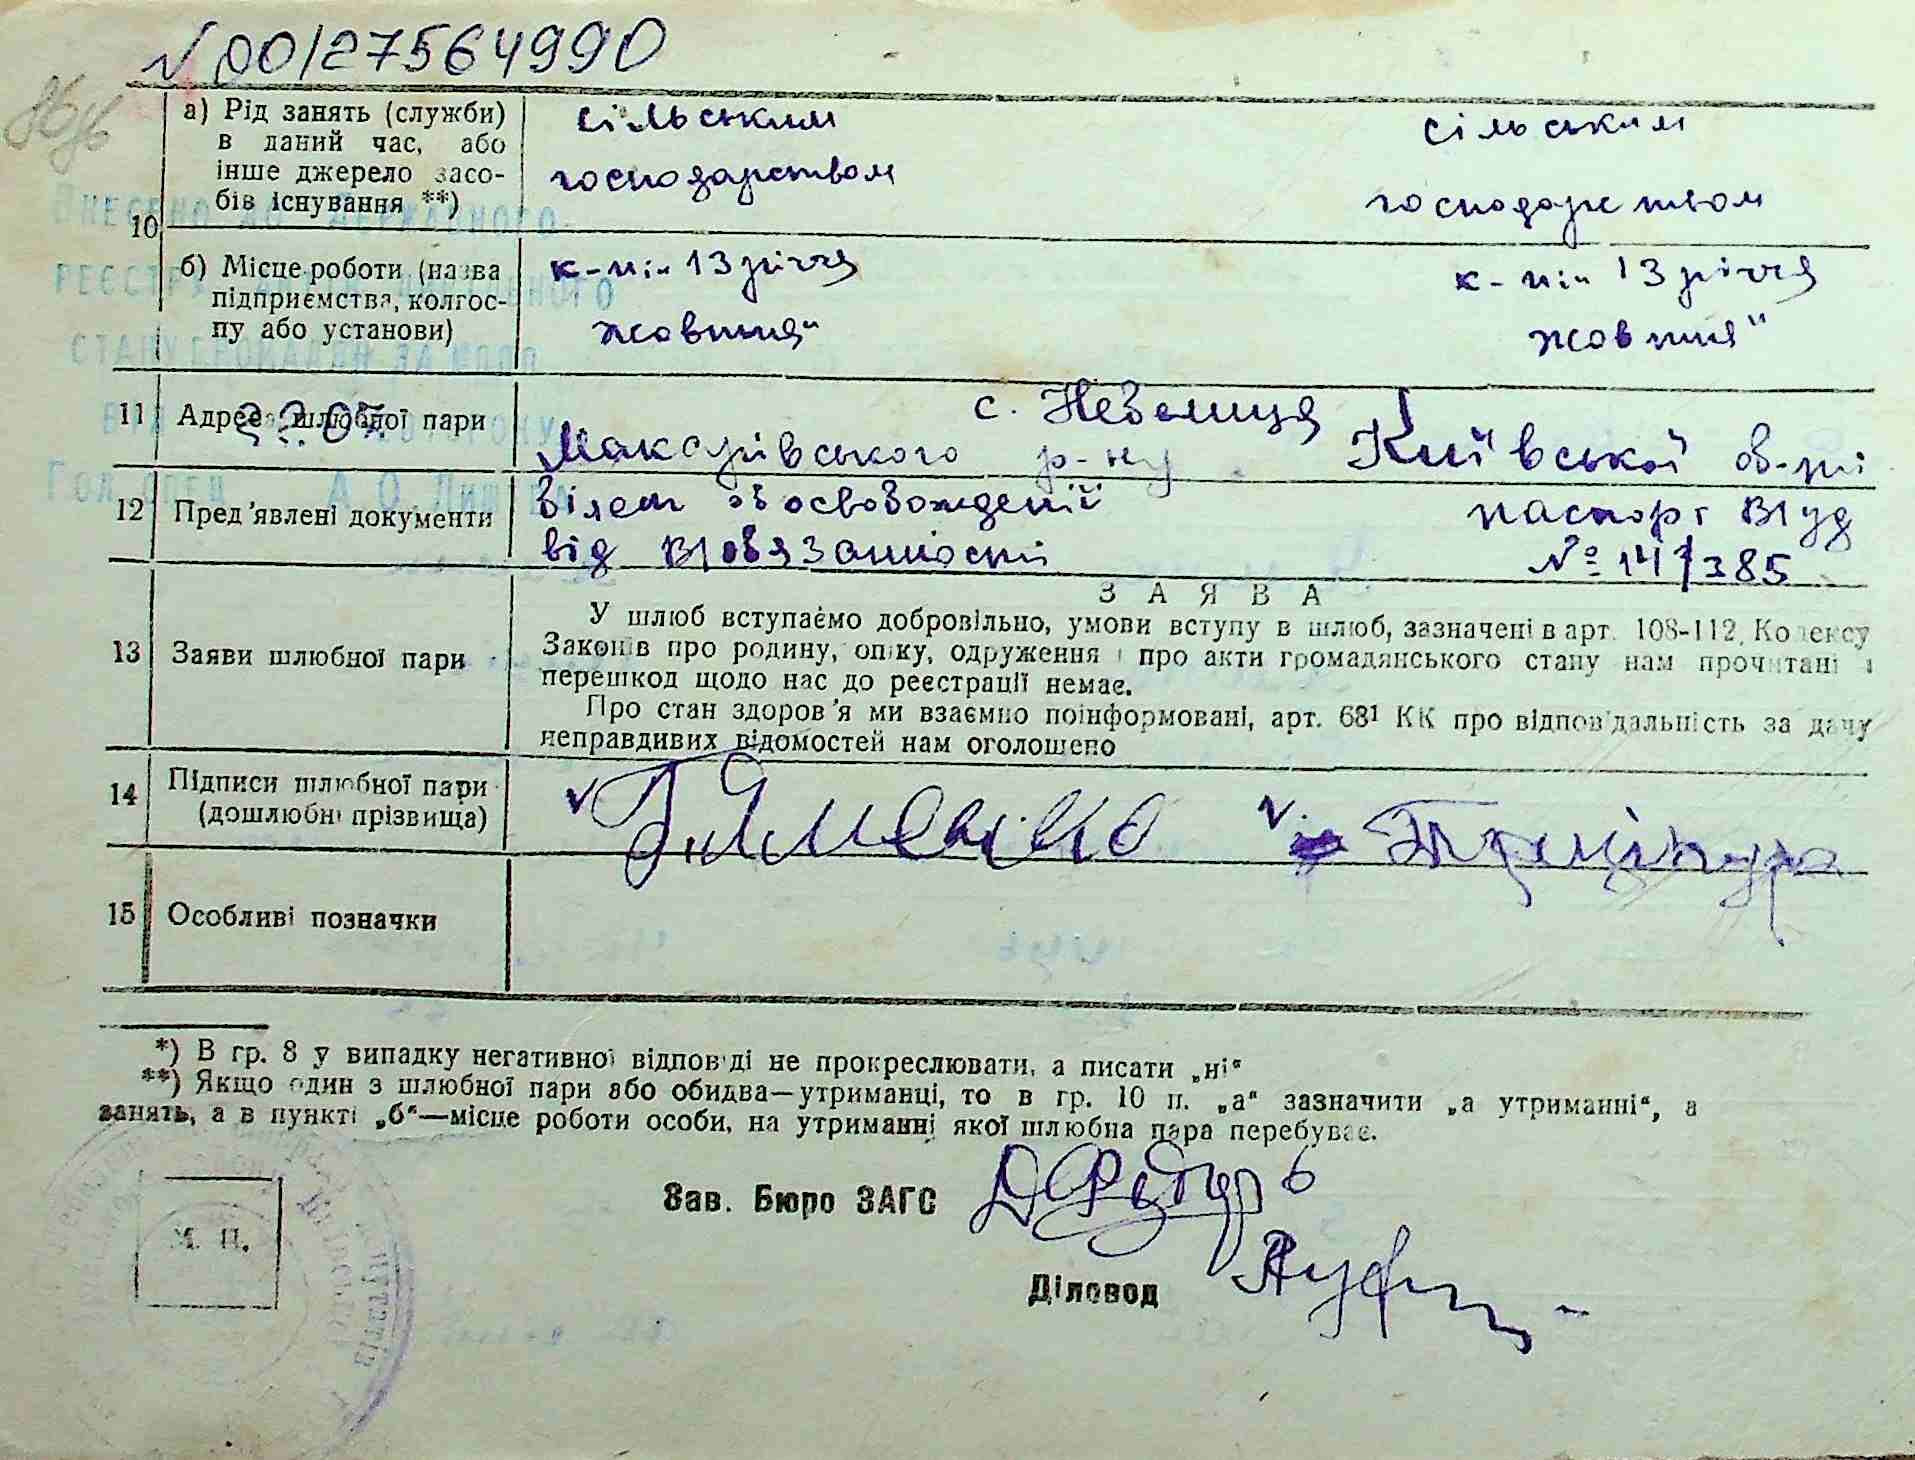 №00127564990
а) Рід занять (служби) в даний час, або інше джерело засобів існування **)
сільським
сільським
господарством
господарством
10
б) Місце роботи (назва підприємства, колгоспу або установи)
к-п ім 13 річчя
к-п ім 13 річчя
жовтня"
жовтня"
11 Адреса шлюбної пари
с. Небелиця
Макарівського р-ну Київської об-ті
12 Пред'явлені документи
білет
паспорт
від
№
13 Заяви шлюбної пари
ЗАЯВА
У шлюб вступаємо добровільно, умови вступу в шлюб, зазначені в арт. 108-112, Кодексу
Законів про родину, опіку, одруження і про акти громадянського стану нам прочитані і
перешкод щодо нас до реєстрації немає.
Про стан здоров'я ми взаємно поінформовані, арт. 68¹ КК про відповідальність за дачу
неправдивих відомостей нам оголошено
14 Підписи шлюбної пари
(дошлюбні прізвища)
15 Особливі позначки
*) В гр. 8 у випадку негативної відповіді не прокреслювати, а писати „ні“
**) Якщо один з шлюбної пари або обидва—утриманці, то в гр. 10 п. „а“ зазначити „а утриманні“, а
занять, а в пункті „б“—місце роботи особи, на утриманні якої шлюбна пара перебуває.
Зав. Бюро ЗАГС
М. П.
Діловод